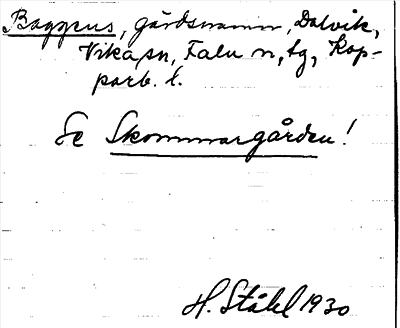 Baggens, gårdsnamn, Dalvik,
Vika sn, Falu n. tg, Kop-
parb. l.
Se Skommargården!
H. Ståhl 1930